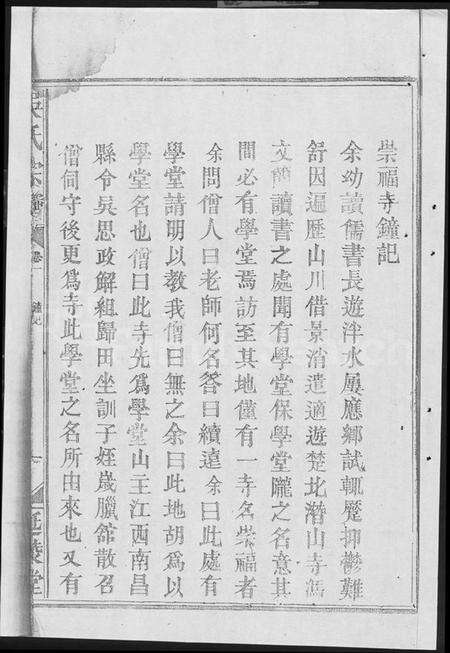 崇福寺鐘記
余幼讀儒書長遊泮水屢應鄉試輒蹙抑鬱難
舒因遍歷山川借景消遣適遊楚北潛山寺馮
文簡讀書之處聞有學堂保學堂隴之名意其
間必有學堂焉訪至其地僅有一寺名崇福者
余問僧人曰老師何名答曰續遠余曰此處有
學堂請明以教我僧曰無之余曰此地胡爲以
學堂名也僧曰此寺先爲學堂山主江西南昌
縣令吳思政解組歸田坐訓子姪歲臘舘散召
僧伺守後更爲寺此學堂之名所由來也又有
吳氏宗譜
卷一
鐘記
一
延陵堂